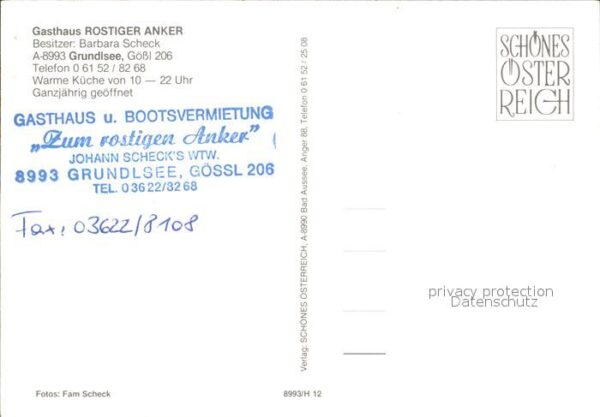 Gasthaus ROSTIGER ANKER
Besitzer: Barbara Scheck
A-8993 Grundlsee, Gößl 206
Telefon 0 61 52 / 82 68
Warme Küche von 10 — 22 Uhr
Ganzjährig geöffnet
GASTHAUS u. BOOTSVERMIETUNG
„Zum rostigen Anker"
JOHANN SCHECK'S WTW.
8993 GRUNDLSEE, GÖSSL 206
TEL. 03622/8268
Fax: 03622/8108
Fotos: Fam Scheck
Verlag: SCHÖNES ÖSTERREICH, A-8990 Bad Aussee, Anger 88, Telefon 0 61 52 / 25 08
8993/H 12
SCHÖNES
ÖSTER
REICH
privacy protection
Datenschutz